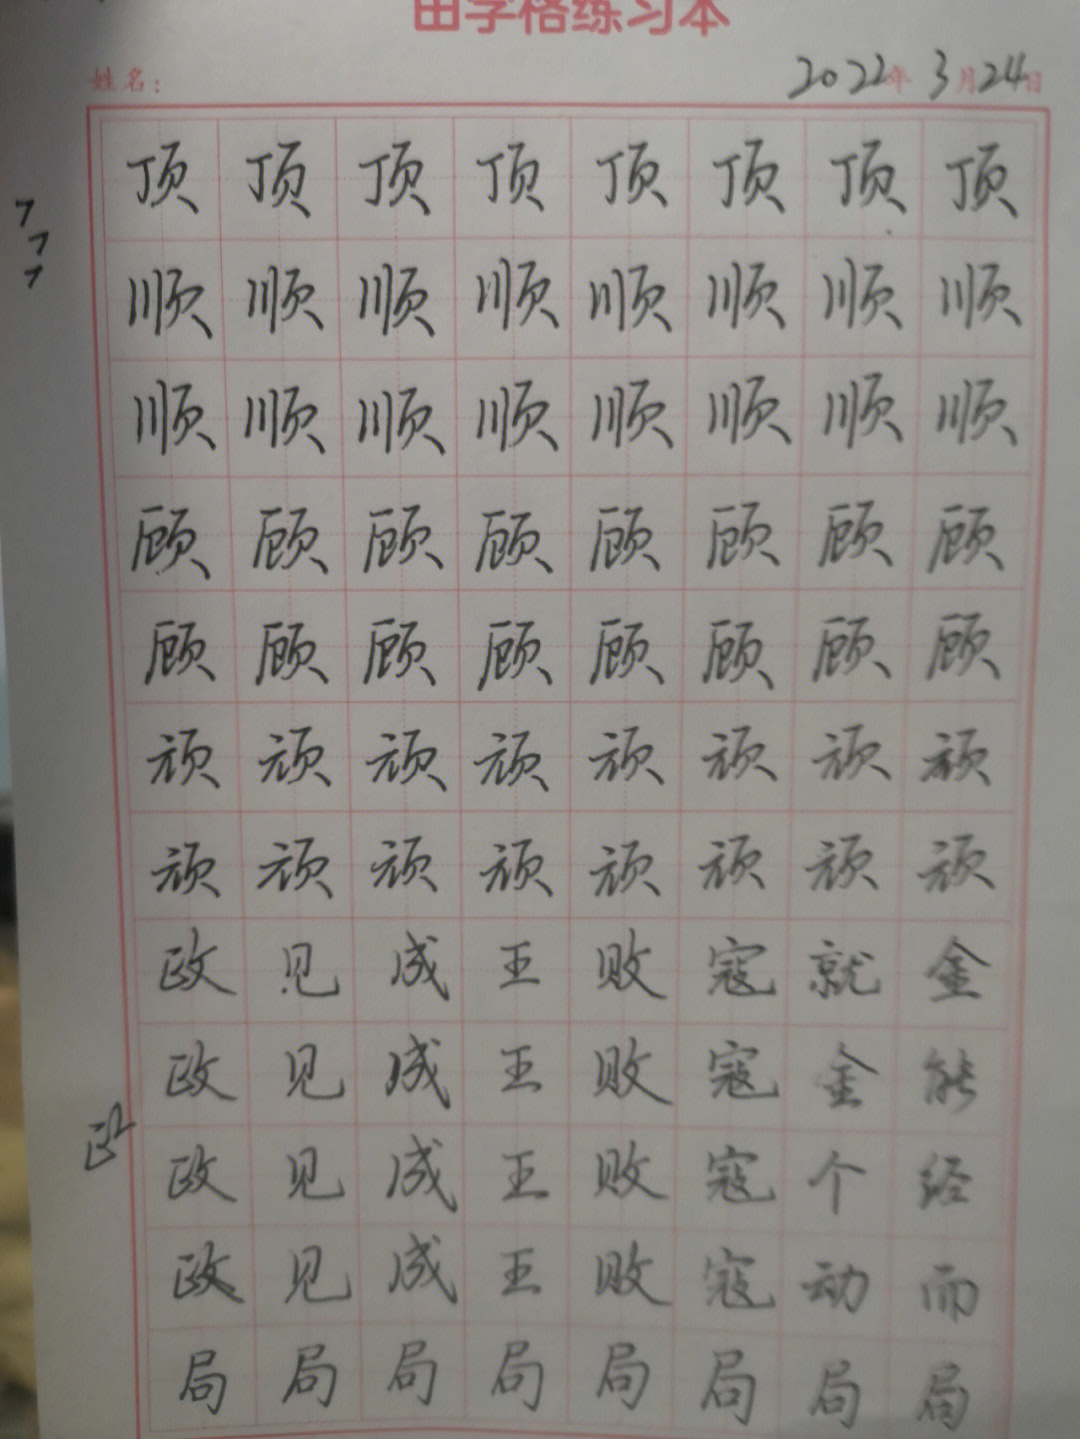 田字格练习本
姓名： 2022年3月24日
顶顶顶顶顶顶顶顶
顺顺顺顺顺顺顺顺
顺顺顺顺顺顺顺顺
顾顾顾顾顾顾顾顾
顾顾顾顾顾顾顾顾
顽顽顽顽顽顽顽顽
顽顽顽顽顽顽顽顽
政见成王败寇就金
政见成王败寇金能
政见成王败寇个经
政见成王败寇动而
局局局局局局局局